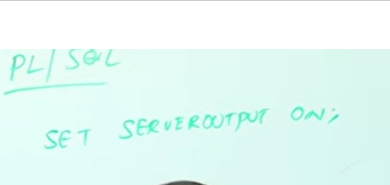 PL/SQL
SET SERVEROUTPUT ON;